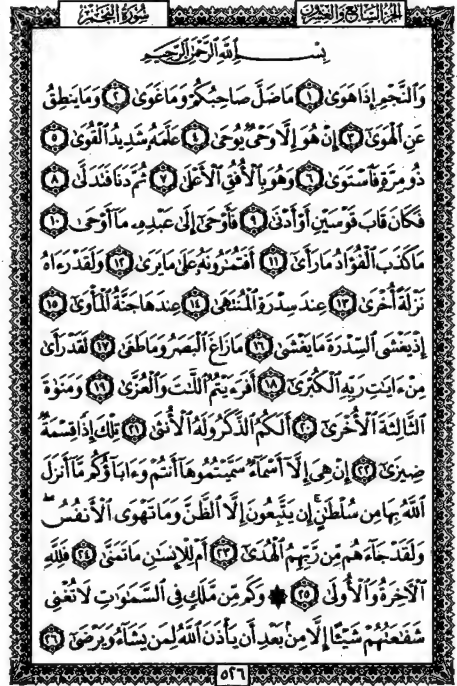 الجزء السابع والعشرون
سورة النجم
بِسْمِ اللَّهِ الرَّحْمَٰنِ الرَّحِيمِ
وَٱلنَّجْمِ إِذَا هَوَىٰ ١ مَا ضَلَّ صَاحِبُكُمْ وَمَا غَوَىٰ ٢ وَمَا يَنطِقُ
عَنِ ٱلْهَوَىٰٓ ٣ إِنْ هُوَ إِلَّا وَحْىٌ يُوحَىٰ ٤ عَلَّمَهُۥ شَدِيدُ ٱلْقُوَىٰ ٥
ذُو مِرَّةٍ فَٱسْتَوَىٰ ٦ وَهُوَ بِٱلْأُفُقِ ٱلْأَعْلَىٰ ٧ ثُمَّ دَنَا فَتَدَلَّىٰ ٨
فَكَانَ قَابَ قَوْسَيْنِ أَوْ أَدْنَىٰ ٩ فَأَوْحَىٰٓ إِلَىٰ عَبْدِهِۦ مَآ أَوْحَىٰ ١٠
مَا كَذَبَ ٱلْفُؤَادُ مَا رَأَىٰٓ ١١ أَفَتُمَٰرُونَهُۥ عَلَىٰ مَا يَرَىٰ ١٢ وَلَقَدْ رَءَاهُ
نَزْلَةً أُخْرَىٰ ١٣ عِندَ سِدْرَةِ ٱلْمُنتَهَىٰ ١٤ عِندَهَا جَنَّةُ ٱلْمَأْوَىٰٓ ١٥
إِذْ يَغْشَى ٱلسِّدْرَةَ مَا يَغْشَىٰ ١٦ مَا زَاغَ ٱلْبَصَرُ وَمَا طَغَىٰ ١٧ لَقَدْ رَأَىٰ
مِنْ ءَايَٰتِ رَبِّهِ ٱلْكُبْرَىٰٓ ١٨ أَفَرَءَيْتُمُ ٱللَّٰتَ وَٱلْعُزَّىٰ ١٩ وَمَنَوٰةَ
ٱلثَّالِثَةَ ٱلْأُخْرَىٰٓ ٢٠ أَلَكُمُ ٱلذَّكَرُ وَلَهُ ٱلْأُنثَىٰ ٢١ تِلْكَ إِذًا قِسْمَةٌ
ضِيزَىٰٓ ٢٢ إِنْ هِىَ إِلَّآ أَسْمَآءٌ سَمَّيْتُمُوهَآ أَنتُمْ وَءَابَآؤُكُم مَّآ أَنزَلَ
ٱللَّهُ بِهَا مِن سُلْطَٰنٍ ۚ إِن يَتَّبِعُونَ إِلَّا ٱلظَّنَّ وَمَا تَهْوَى ٱلْأَنفُسُ ۖ
وَلَقَدْ جَآءَهُم مِّن رَّبِّهِمُ ٱلْهُدَىٰٓ ٢٣ أَمْ لِلْإِنسَٰنِ مَا تَمَنَّىٰ ٢٤ فَلِلَّهِ
ٱلْءَاخِرَةُ وَٱلْأُولَىٰ ٢٥ ۞ وَكَم مِّن مَّلَكٍ فِى ٱلسَّمَٰوَٰتِ لَا تُغْنِى
شَفَٰعَتُهُمْ شَيْـًٔا إِلَّا مِنۢ بَعْدِ أَن يَأْذَنَ ٱللَّهُ لِمَن يَشَآءُ وَيَرْضَىٰٓ ٢٦
٥٢٦